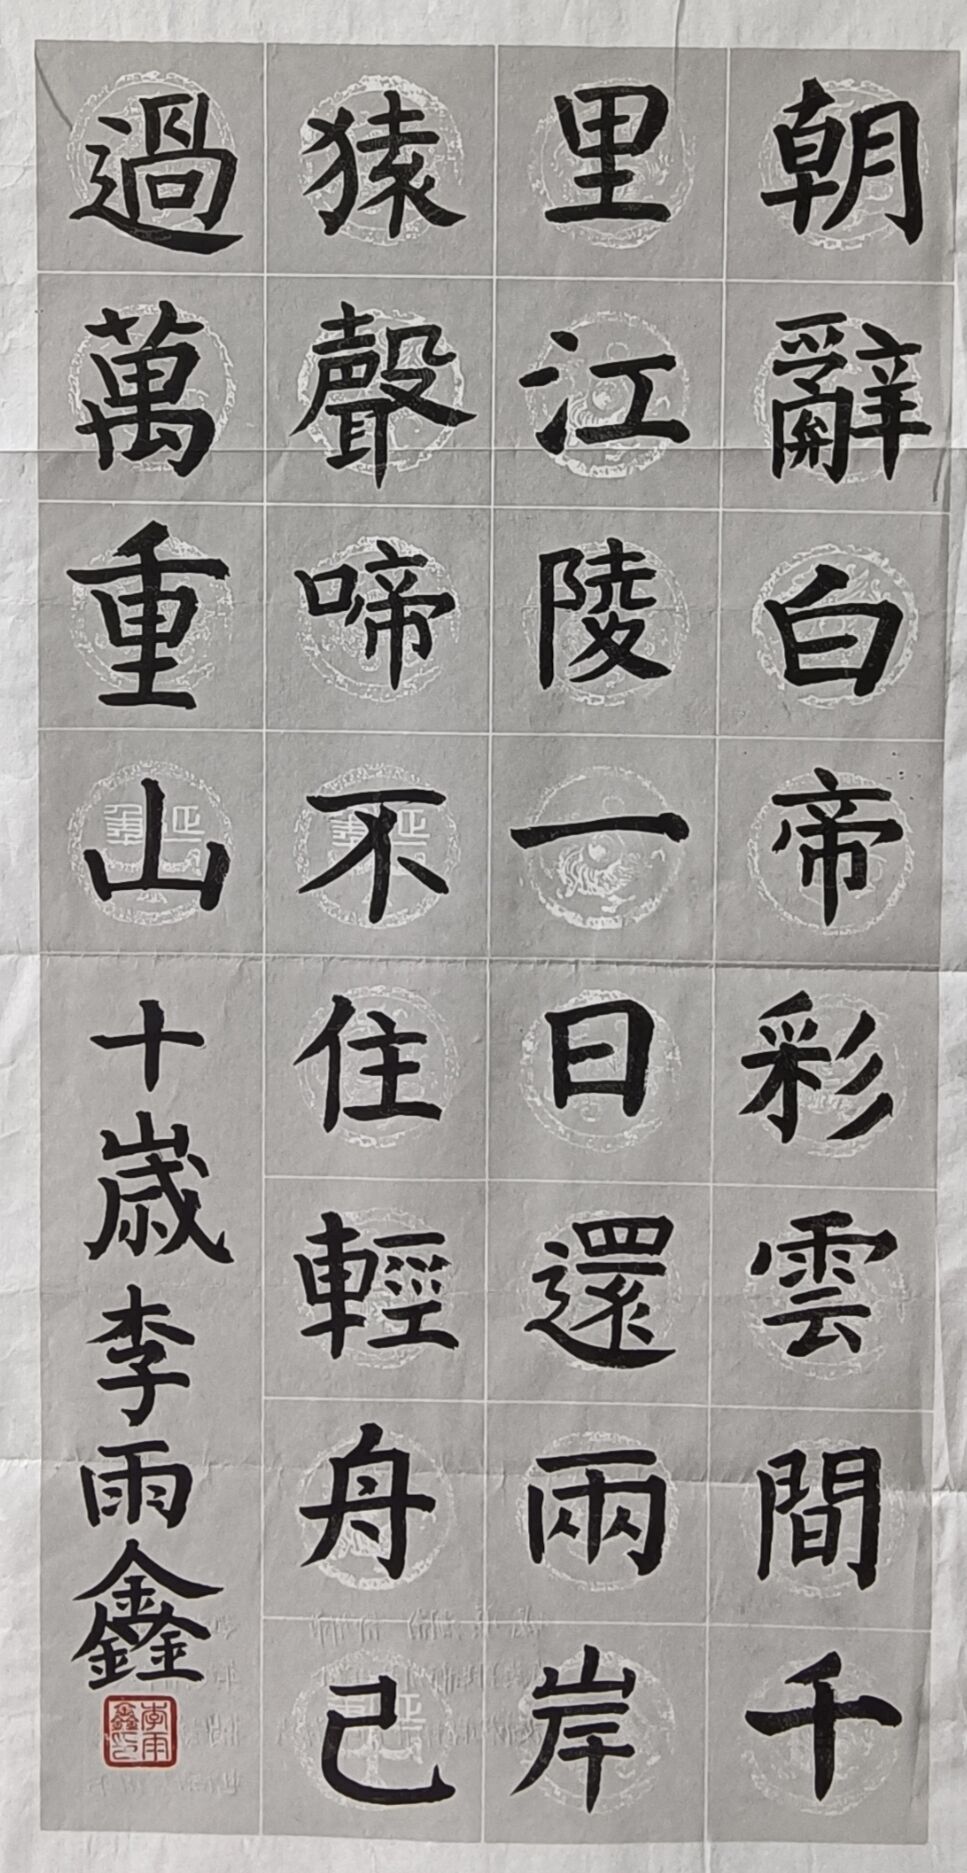 朝辭白帝彩雲間千
里江陵一日還兩岸
猿聲啼不住輕舟已
過萬重山
十歲李雨鑫
李雨鑫印